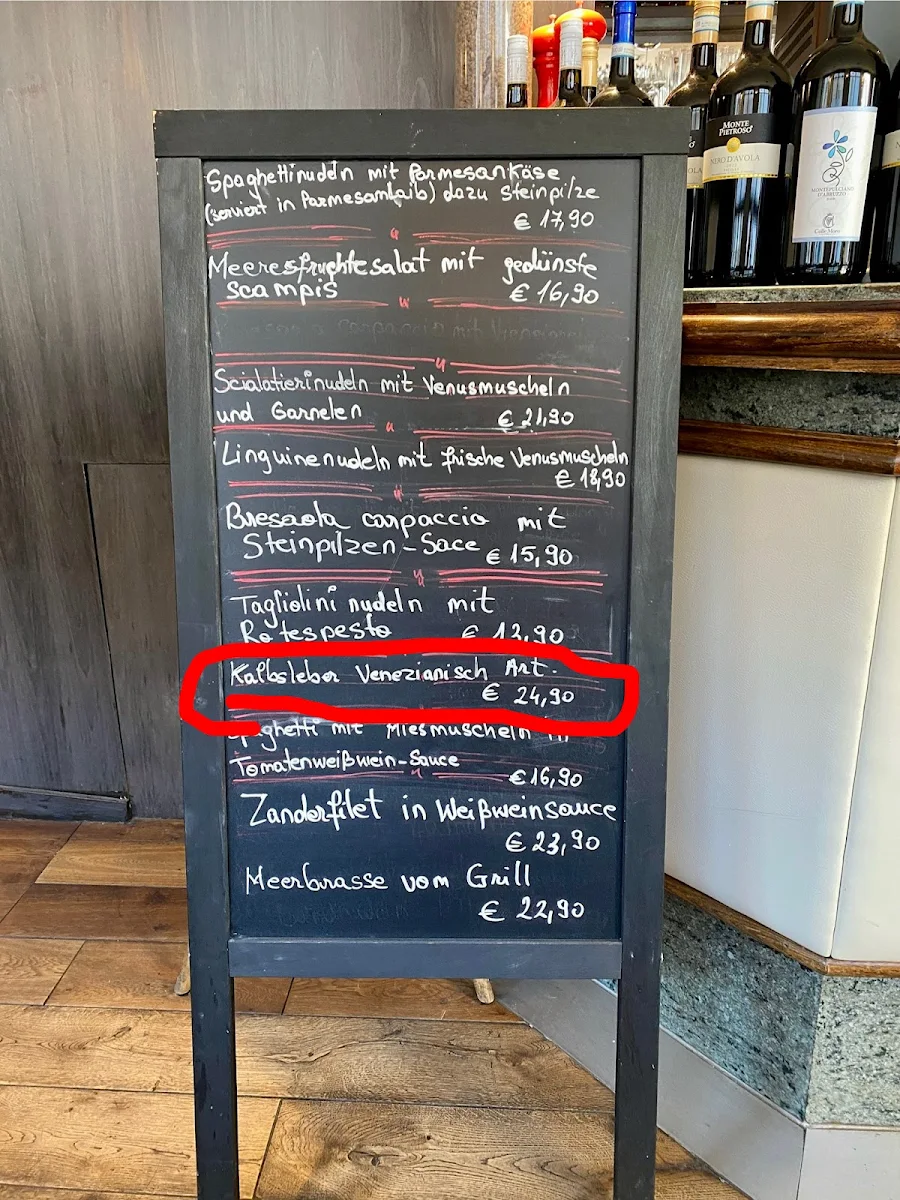 Spaghettinudeln mit Parmesankäse
(serviert in Parmesanlaib) dazu Steinpilze
€ 17,90
Meeresfruchtesalat mit gedünste
scampis € 16,90
carpaccio mit
Scialatierinudeln mit Venusmuscheln
und Garnelen € 21,90
Linguinenudeln mit frische Venusmuscheln
€ 18,90
Bresaola carpaccio mit
Steinpilzen-Sace € 15,90
Tagliolini nudeln mit
Rotespesto € 13,90
Kalbsleber Venezianisch Art.
€ 24,90
Spaghetti mit Miesmuscheln in
Tomatenweißwein-Sauce
€ 16,90
Zanderfilet in Weißweinsauce
€ 23,90
Meerbrasse vom Grill
€ 22,90
MONTE
PIETROSO
NERO D'AVOLA
MONTEPULCIANO
D'ABRUZZO